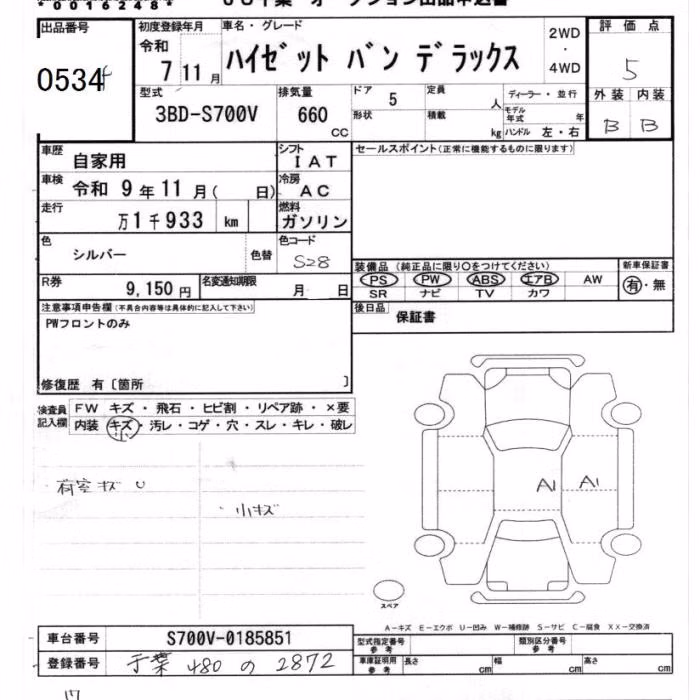 * 0 0 1 6 2 4 8 *
出品番号 初度登録年月 車名・グレード 2WD ・ 4WD 評価点
0534 令和 7 11月 ハイゼット バン デラックス 5
型式 排気量 ドア 定員 ディーラー・並行 外装 内装
3BD-S700V 660 CC 5 人 モデル年式 年 B B
形状 積載 kg ハンドル 左・右
車歴 自家用 シフト IAT セールスポイント(正常に機能するものに限ります)
車検 令和 9年11月( 日) 冷房 AC
走行 万1千933 km 燃料 ガソリン
色 シルバー 色替 色コード S28
装備品 (純正品に限り○をつけてください) 新車保証書
PS PW ABS エアB AW 有・無
SR ナビ TV カワ
R券 9,150円 名変通知期限 月 日
後日品 保証書
注意事項申告欄(不具合内容等は具体的に記入して下さい)
PWフロントのみ
修復歴 有〔箇所 〕
検査員記入欄 FW キズ・飛石・ヒビ割・リペア跡・×要
内装 キズ・汚レ・コゲ・穴・スレ・キレ・破レ
小
荷室キズ U
小キズ
A1 A1
スペア
A-キズ E-エクボ U-凹み W-補修跡 S-サビ C-腐食 XX-交換済
車台番号 S700V-0185851 型式指定番号 参考 類別区分番号 参考
登録番号 千葉 480 の 2872 車庫証明用 参考 長さ cm 幅 cm 高さ cm